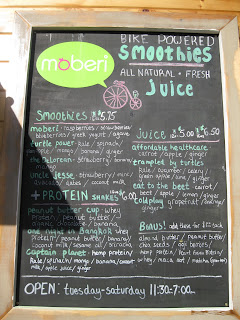 BIKE POWERED
moberi
smoothies
ALL NATURAL + FRESH
juice
Smoothies $5.75
moberi - raspberries / strawberries / blueberries / greek yogurt / agave
turtle power - kale / spinach / apple / mango / banana / ginger
the delorean - strawberry / banana
uncle jesse - strawberry / mint / avocado / coconut milk
+ PROTEIN shakes $6.00
peanut butter cup - whey protein / peanut butter /
one night in bangkok - whey protein / peanut butter / banana / coconut milk / sesame oil / sriracha
captain planet - hemp protein / kale / spinach / mango / banana / coconut milk / apple juice / ginger
juice $5.00 $6.50
affordable healthcare
carrot / apple / ginger
trampled by turtles
kale / cucumber / celery / green apple / lime / ginger
eat to the beet - carrot / beet / apple / lemon / ginger
coldplay - grapefruit / orange / ginger
BONUS! add these for $
almond butter / peanut butter / chia seeds / goji berries / hemp protein /
OPEN: tuesday-saturday 11:30-7:00